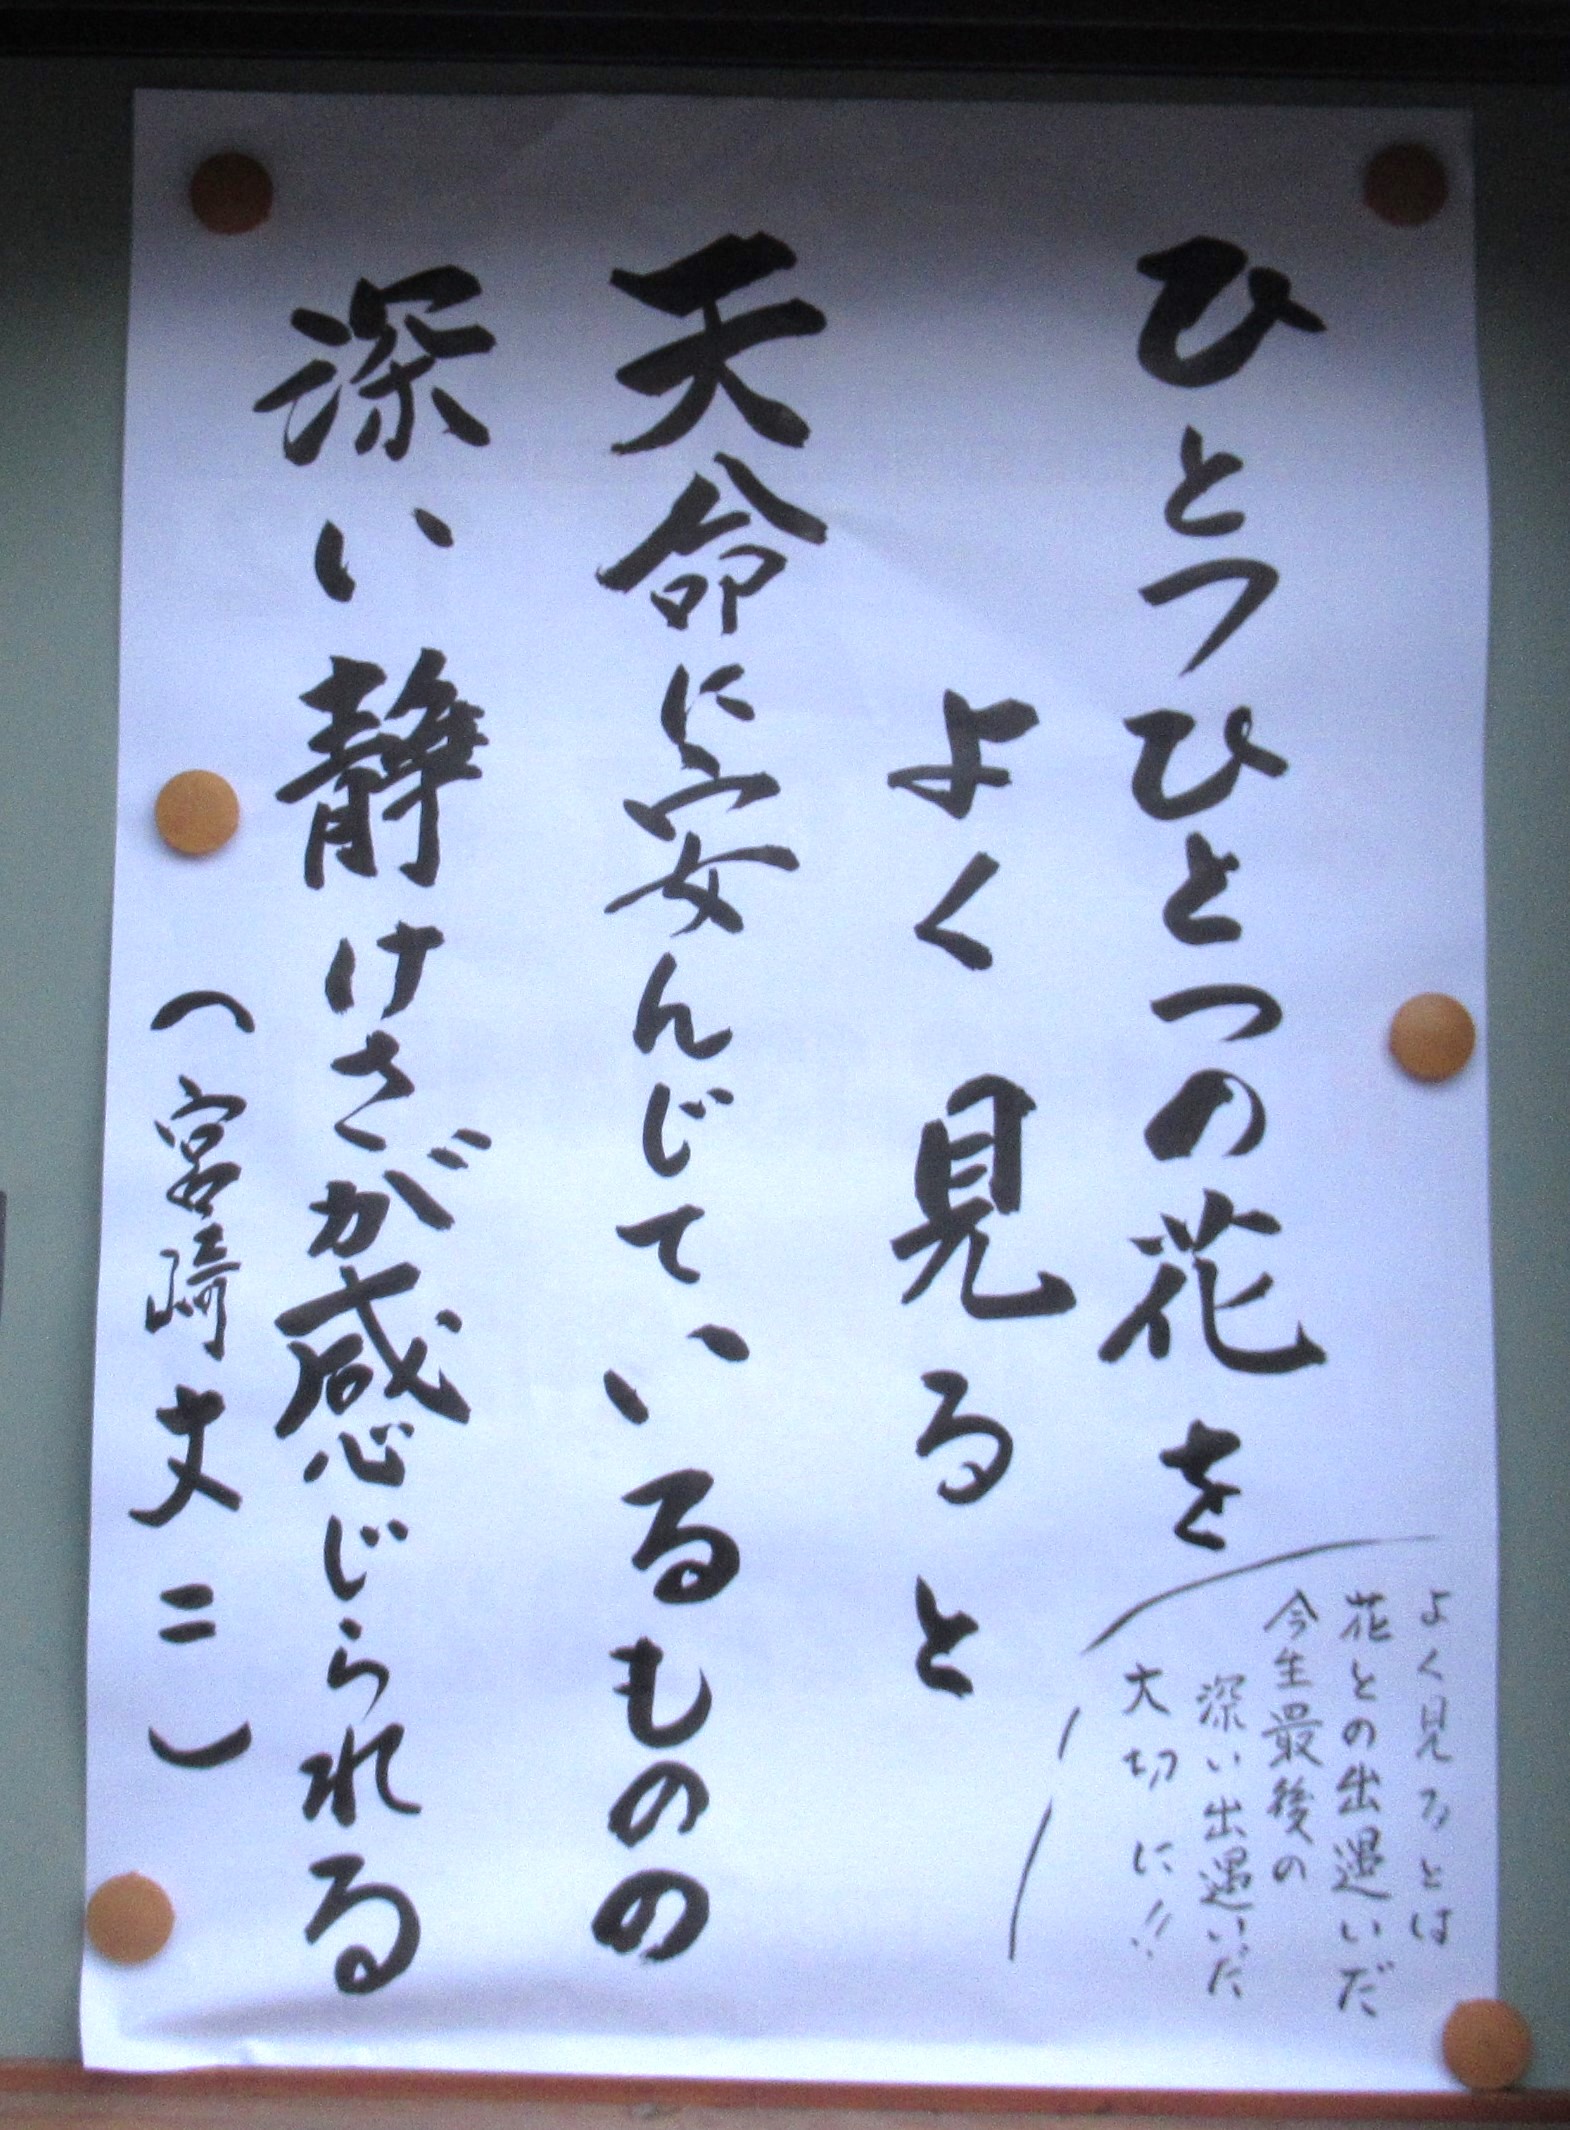 ひとつひとつの花を
よく見ると
天命に安んじているものの
深い静けさが感じられる
(宮崎丈二)
よく見るとは
花との出遇いだ
今生最後の
深い出遇いだ
大切に!!